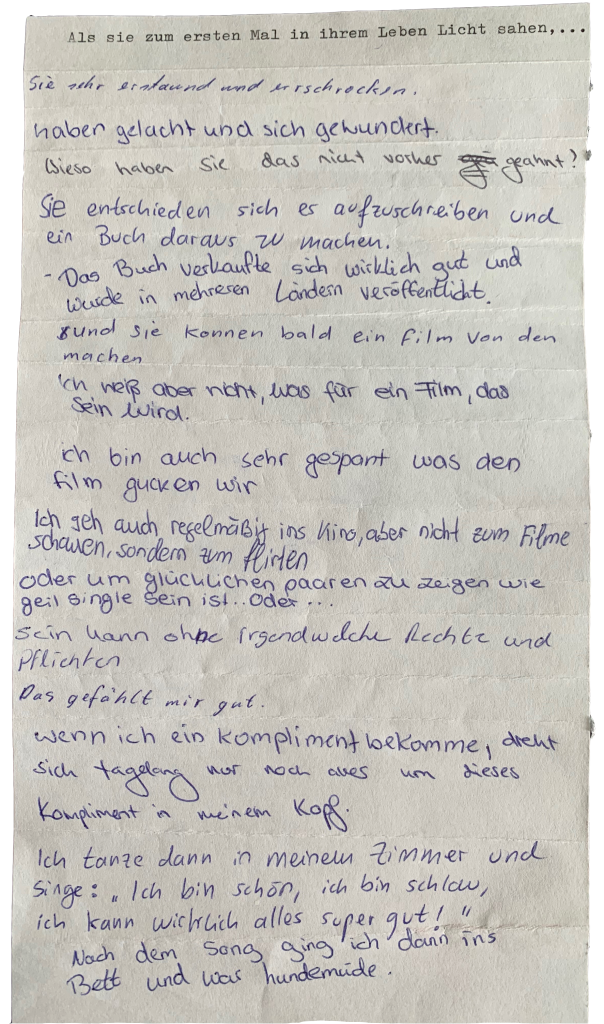 Als sie zum ersten Mal in ihrem Leben Licht sahen,...
Sie sehr erstaund und erschrocken.
haben gelacht und sich gewundert.
Wieso haben sie das nicht vorher geahnt?
Sie entschieden sich es aufzuschreiben und
ein Buch daraus zu machen.
- Das Buch verkaufte sich wirklich gut und
wurde in mehreren Ländern veröffentlicht.
und sie konnen bald ein film von den
machen
Ich weiß aber nicht, was für ein Film, das
sein wird.
ich bin auch sehr gespant was den
film gucken wir
Ich geh auch regelmäßig ins Kino, aber nicht zum Filme
schauen, sondern zum flirten
oder um glücklichen paaren zu zeigen wie
geil single sein ist.. oder...
sein kann ohne irgendwelche Rechte und
Pflichten
Das gefählt mir gut.
wenn ich ein Kompliment bekomme, dreht
sich tagelang nur noch alles um dieses
Kompliment in meinem Kopf.
Ich tanze dann in meinem Zimmer und
singe: „Ich bin schön, ich bin schlau,
ich kann wirklich alles super gut!"
Nach dem Song ging ich dann ins
Bett und war hundemüde.